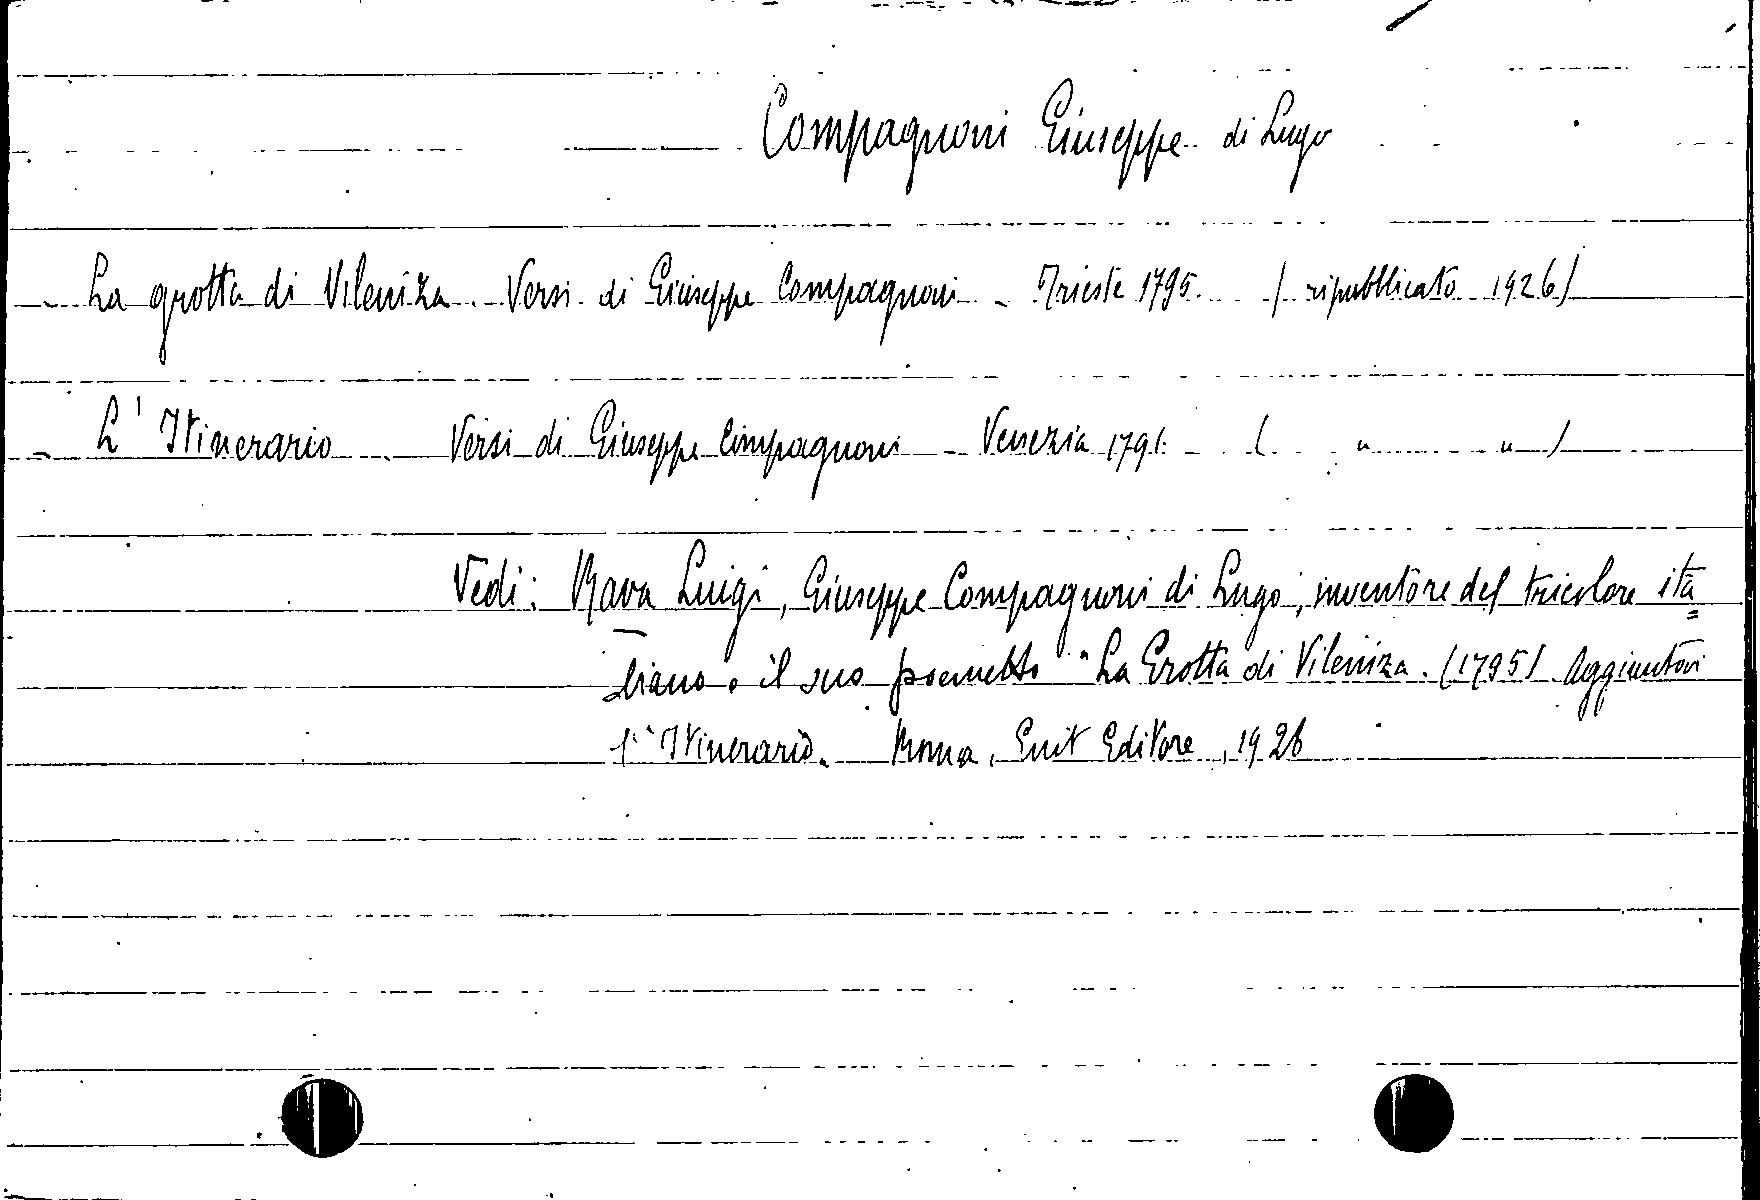 Compagnoni Giuseppe di Lugo
- La grotta di Vileniza. Versi di Giuseppe Compagnoni - Trieste 1795. (ripubblicato 1926)
- L'Itinerario. Versi di Giuseppe Compagnoni - Venezia 1791. ( " " )
Vedi: Rava Luigi, Giuseppe Compagnoni di Lugo, inventore del tricolore ita=
liano e il suo poemetto "La Grotta di Vileniza. (1795) Aggiuntovi
l'"Itinerario. Roma, Enit Editore, 1926